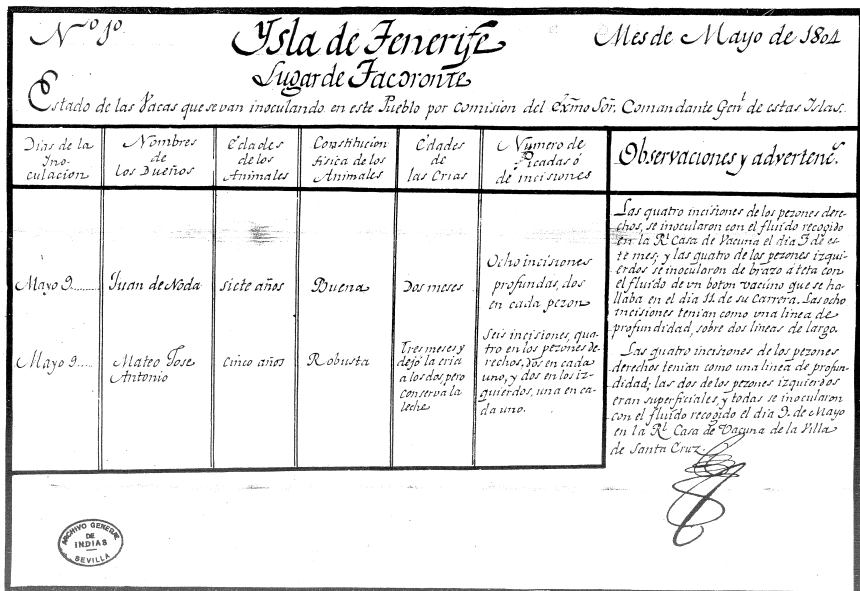 Nº 1º
Ysla de Tenerife
Mes de Mayo de 1804
Lugar de Tacoronte
Estado de las Vacas que se van inoculando en este Pueblo por comision del Exmo Sor. Comandante Genl. de estas Islas.
Dias de la
Ino-
culacion
Nombres
de
los Dueños
Edades
de los
Animales
Constitucion
fisica de los
Animales
Edades
de
las Crias
Numero de
Picadas ó
de incisiones
Observaciones y advertens.
Mayo 9........
Juan de Noda
siete años
Buena
Dos meses
Ocho incisiones
profundas, dos
en cada pezon
Las quatro incisiones de los pezones dere-
chos, se inocularon con el fluido recogido
en la Rl. Casa de Vacuna el dia 9 de es-
te mes; y las quatro de los pezones izqui-
erdos se inocularon de brazo á teta con
el fluido de vn boton vacuno que se ha-
llaba en el dia 11 de su Carrera. Las ocho
incisiones tenian como vna linea de
profundidad, sobre dos lineas de largo.
Mayo 9......
Mateo Jose
Antonio
cinco años
Robusta
Tres meses y
dejó la cria
a los dos, pero
conserva la
leche
Seis incisiones, qua-
tro en los pezones de-
rechos, dos en cada
uno, y dos en los iz-
quierdos, una en ca-
da uno.
Las quatro incisiones de los pezones
derechos tenian como vna linea de profun-
didad; las dos de los pezones izquierdos
eran superficiales, y todas se inocularon
con el fluido recogido el dia 9 de Mayo
en la Rl. Casa de Vacuna de la Villa
de Santa Cruz.
ARCHIVO GENERAL
DE
INDIAS
SEVILLA